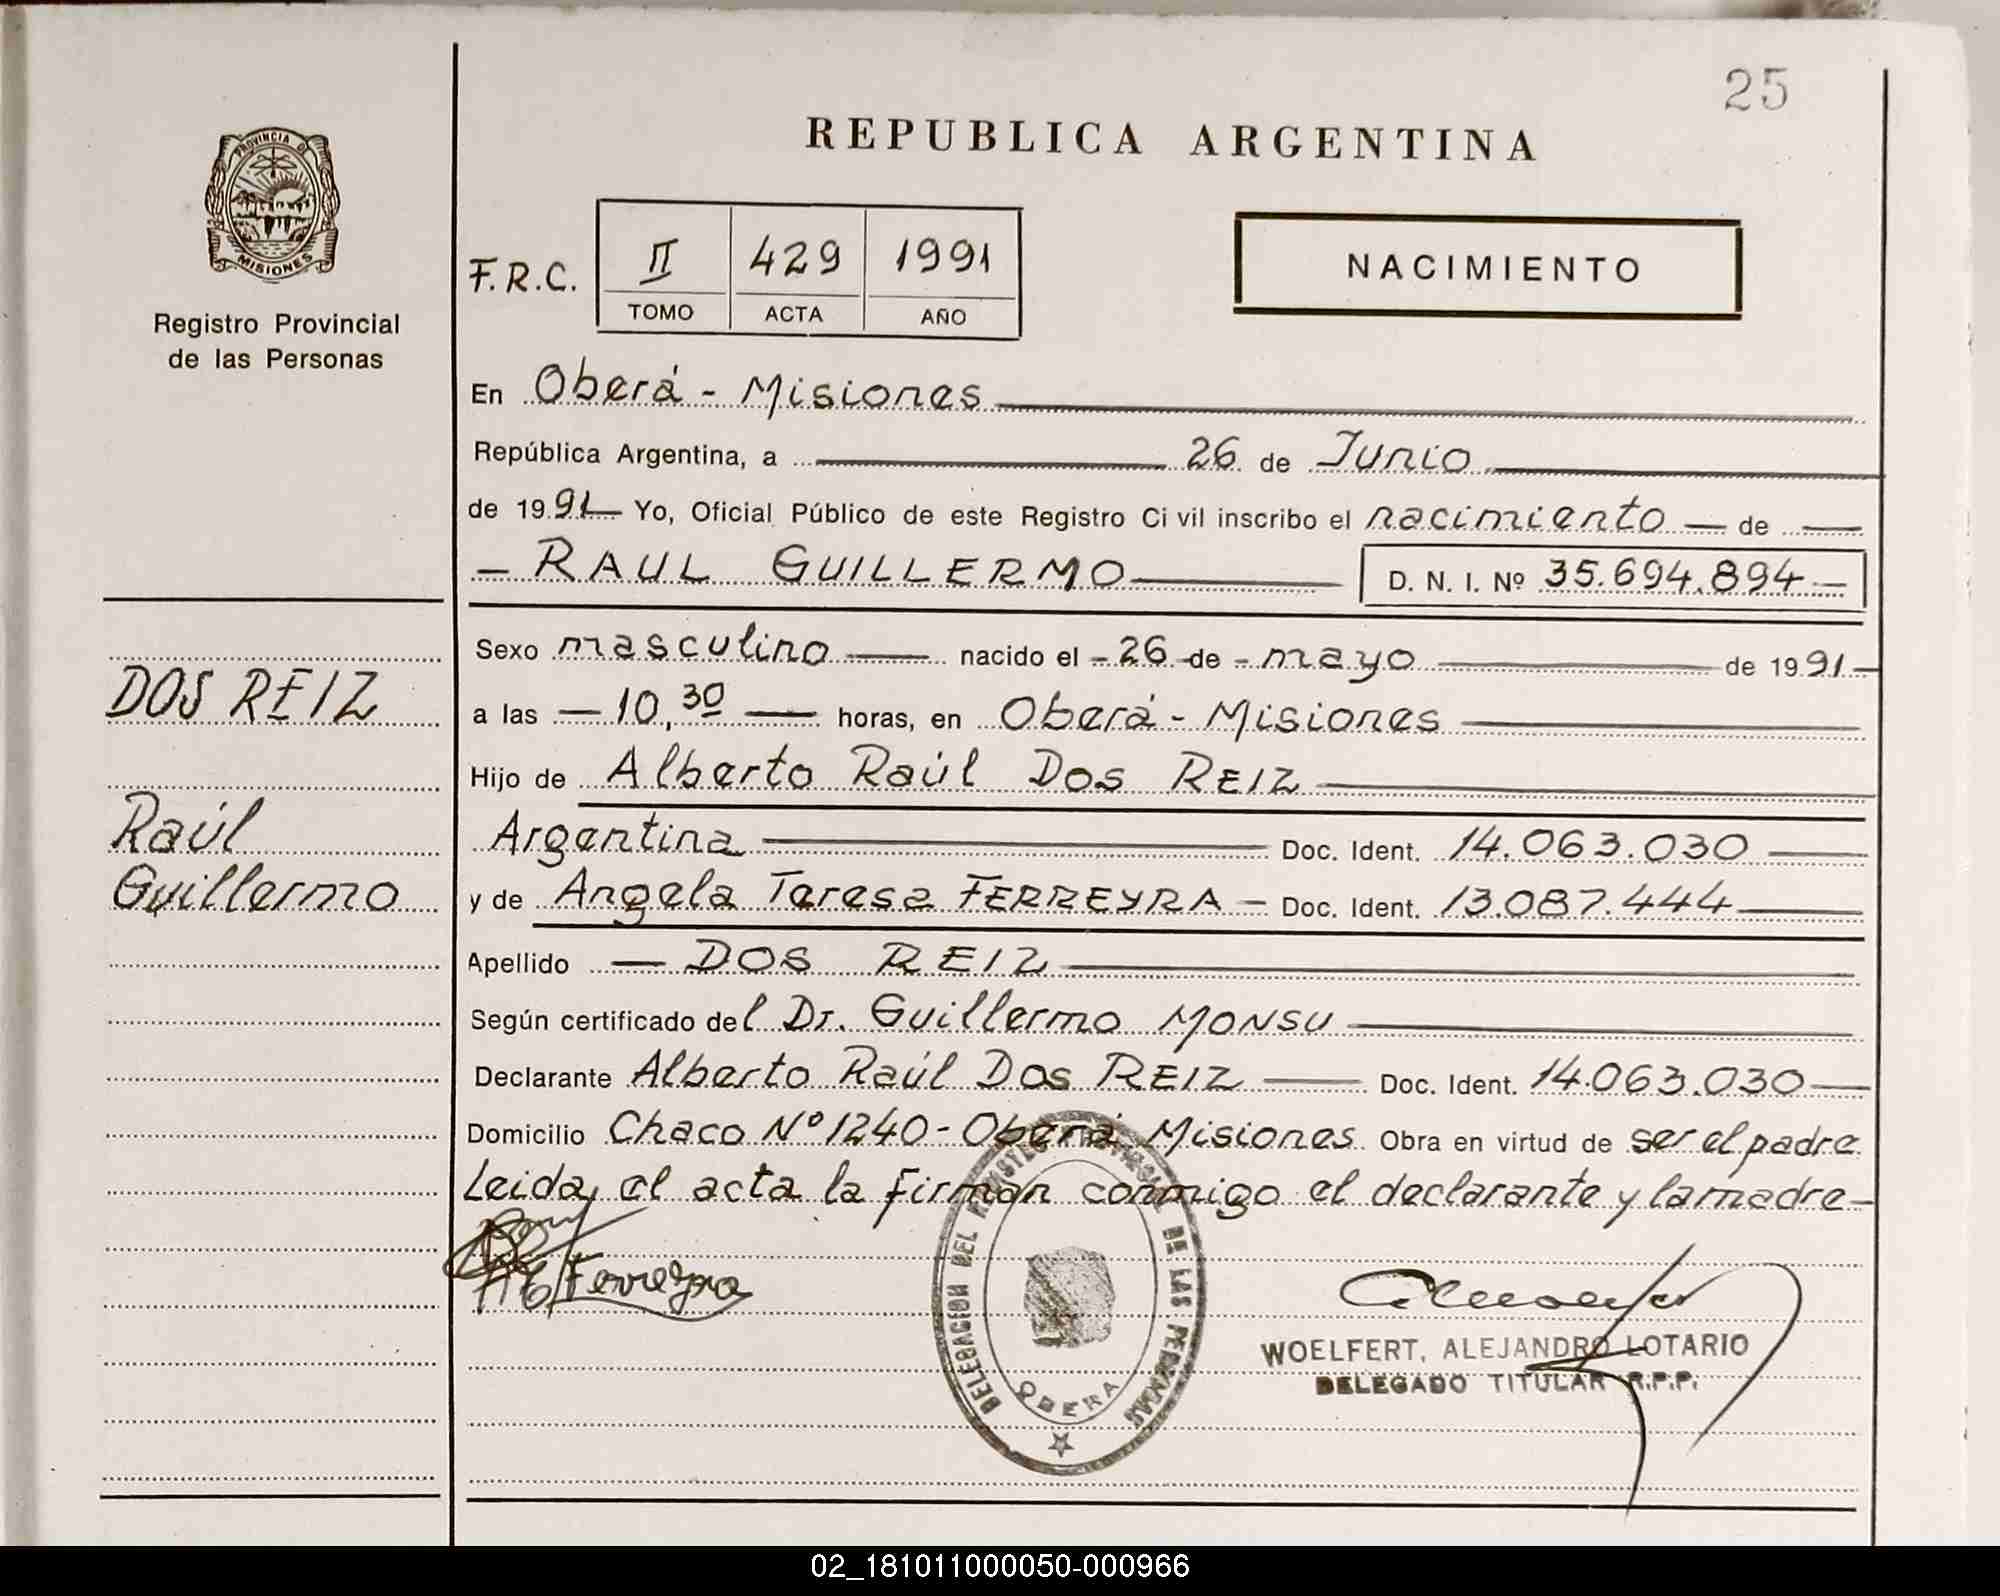 25
REPUBLICA ARGENTINA
PROVINCIA DE
MISIONES
Registro Provincial
de las Personas
F.R.C.
II 429 1991
TOMO ACTA AÑO
NACIMIENTO
En Oberá - Misiones
República Argentina, a 26 de Junio
de 1991 Yo, Oficial Público de este Registro Civil inscribo el nacimiento de
RAUL GUILLERMO D. N. I. Nº 35.694.894
DOS REIZ
Raúl
Guillermo
Sexo masculino nacido el 26 de mayo de 1991
a las 10,30 horas, en Oberá - Misiones
Hijo de Alberto Raúl Dos REIZ
Argentina Doc. Ident. 14.063.030
y de Angela Teresa FERREYRA Doc. Ident. 13.087.444
Apellido DOS REIZ
Según certificado del Dr. Guillermo MONSU
Declarante Alberto Raúl Dos REIZ Doc. Ident. 14.063.030
Domicilio Chaco Nº 1240 - Oberá Misiones Obra en virtud de ser el padre
Leida, el acta la firman conmigo el declarante y la madre
Ferreyra
DELEGACION DEL REGISTRO PROVINCIAL DE LAS PERSONAS
OBERA
WOELFERT, ALEJANDRO LOTARIO
DELEGADO TITULAR R.P.P.
02_181011000050-000966